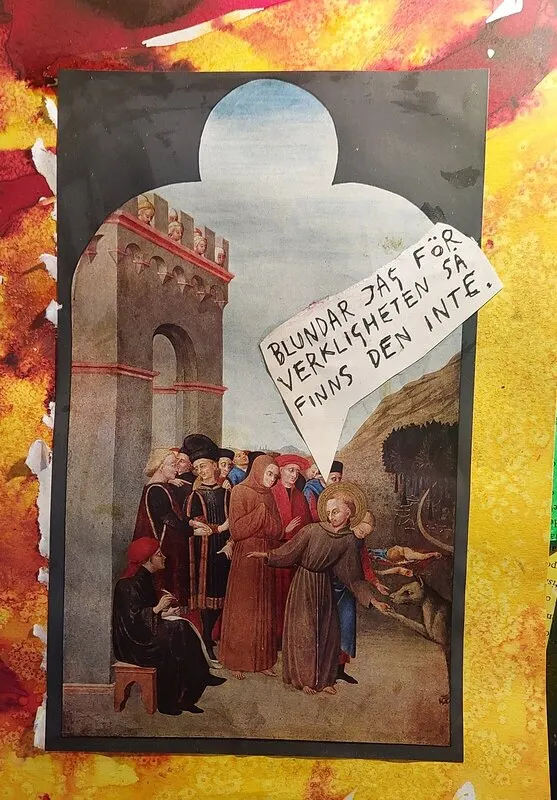 BLUNDAR JAG FÖR
VERKLIGHETEN SÅ
FINNS DEN INTE.